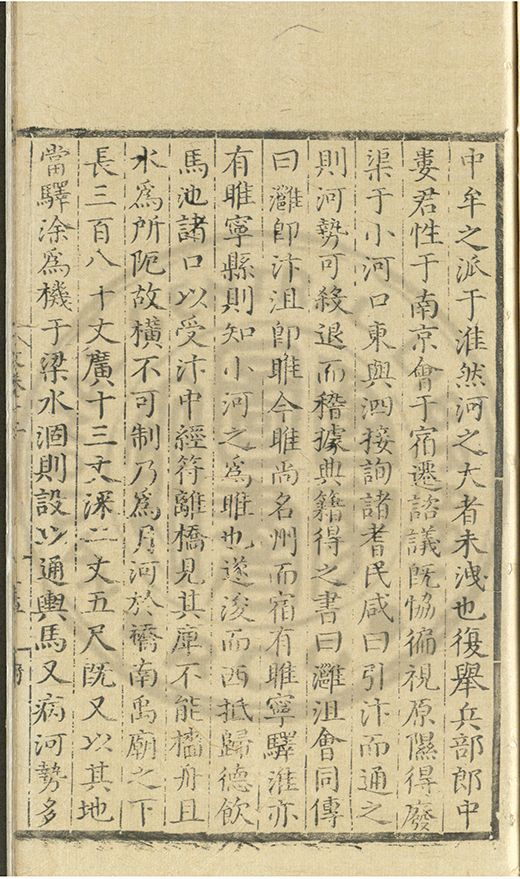 中牟之派于淮然河之大者未洩也復舉兵部郎中
婁君性于南京會于宿遷諮議既恊徧視原隰得廢
渠于小河口東與泗接詢諸耆民咸曰引汴而通之
則河勢可殺退而稽據典籍得之書曰灉沮會同傳
曰灉卽汴沮卽睢今睢尚名州而宿有睢寧驛淮亦
有睢寧縣則知小河之爲睢也遂浚而西抵歸德飲
馬池諸口以受汴中經符離橋見其庳不能檣舟且
水爲所阨故橫不可制乃爲月河於橋南禹廟之下
長三百八十丈廣十三丈深二丈五尺既又以其地
當驛涂爲機于梁水涸則設以通輿馬又病河勢多